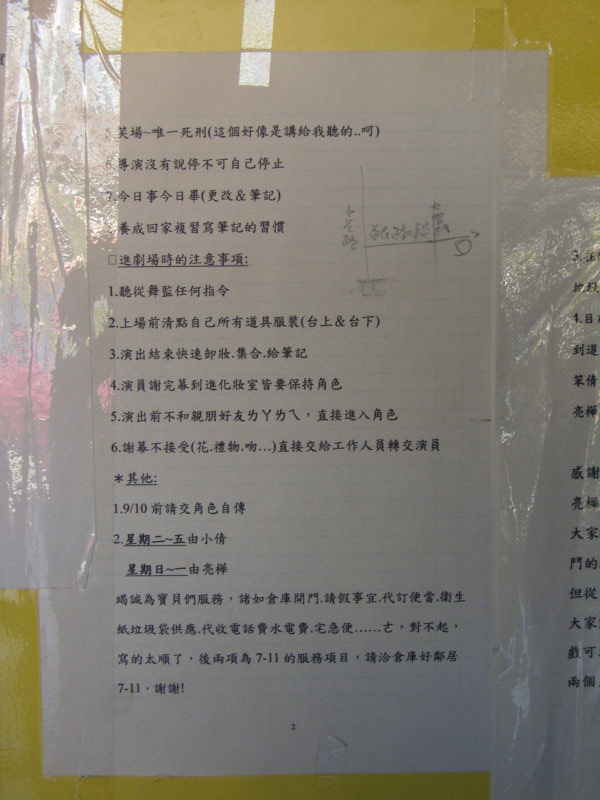 5.笑場~唯一死刑(這個好像是講給我聽的..呵)
6.導演沒有說停不可自己停止
7.今日事今日畢(更改＆筆記)
養成回家複習寫筆記的習慣
□進劇場時的注意事項:
1.聽從舞監任何指令
2.上場前清點自己所有道具服裝(台上＆台下)
3.演出結束快速卸妝.集合.給筆記
4.演員謝完幕到進化妝室皆要保持角色
5.演出前不和親朋好友ㄌㄚㄌㄟ，直接進入角色
6.謝幕不接受(花.禮物.吻…)直接交給工作人員轉交演員
＊其他:
1.9/10 前請交角色自傳
2.星期二~五由小倩
星期日~一由亮樺
竭誠為寶貝們服務，諸如倉庫開門.請假事宜.代訂便當.衛生
紙垃圾袋供應.代收電話費水電費.宅急便……ㄜ，對不起，
寫的太順了，後兩項為 7-11 的服務項目，請洽倉庫好鄰居
7-11，謝謝!
2
3.在
垃圾
4.目
到道
笨倩
亮樺
感謝
亮樺
大家
鬥的
但從
大家
戲可
兩個